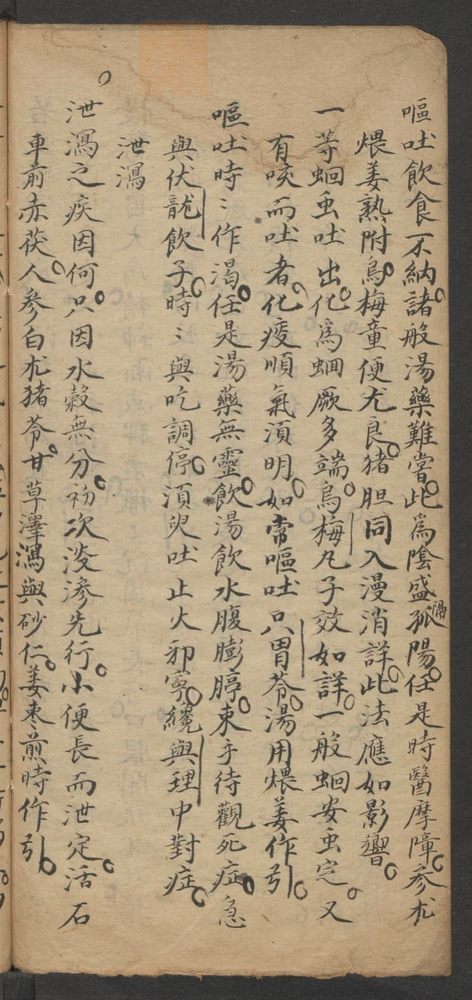 嘔吐飲食不納諸般湯藥難嘗此為陰盛隔孤陽任是時醫摩障參朮
煨姜熟附烏梅童便尤良猪胆同入漫消詳此法應如影響
一等蛔虫吐出化為蛔厥多端烏梅丸子效如詳一般蛔安虫定又
有咳而吐者化痰順氣須明如常嘔吐只胃苓湯用煨姜作引
嘔吐時〻作渴任是湯藥無靈飲湯飲水腹膨脝束手待觀死症急
與伏龍飲子時〻與吃調停須臾吐止火邪寧纔與理中對症
泄瀉
泄瀉之疾因何只因水穀無分初次淡滲先行小便長而泄定活石
車前赤茯人參白朮猪苓甘草澤瀉與砂仁姜枣煎時作引